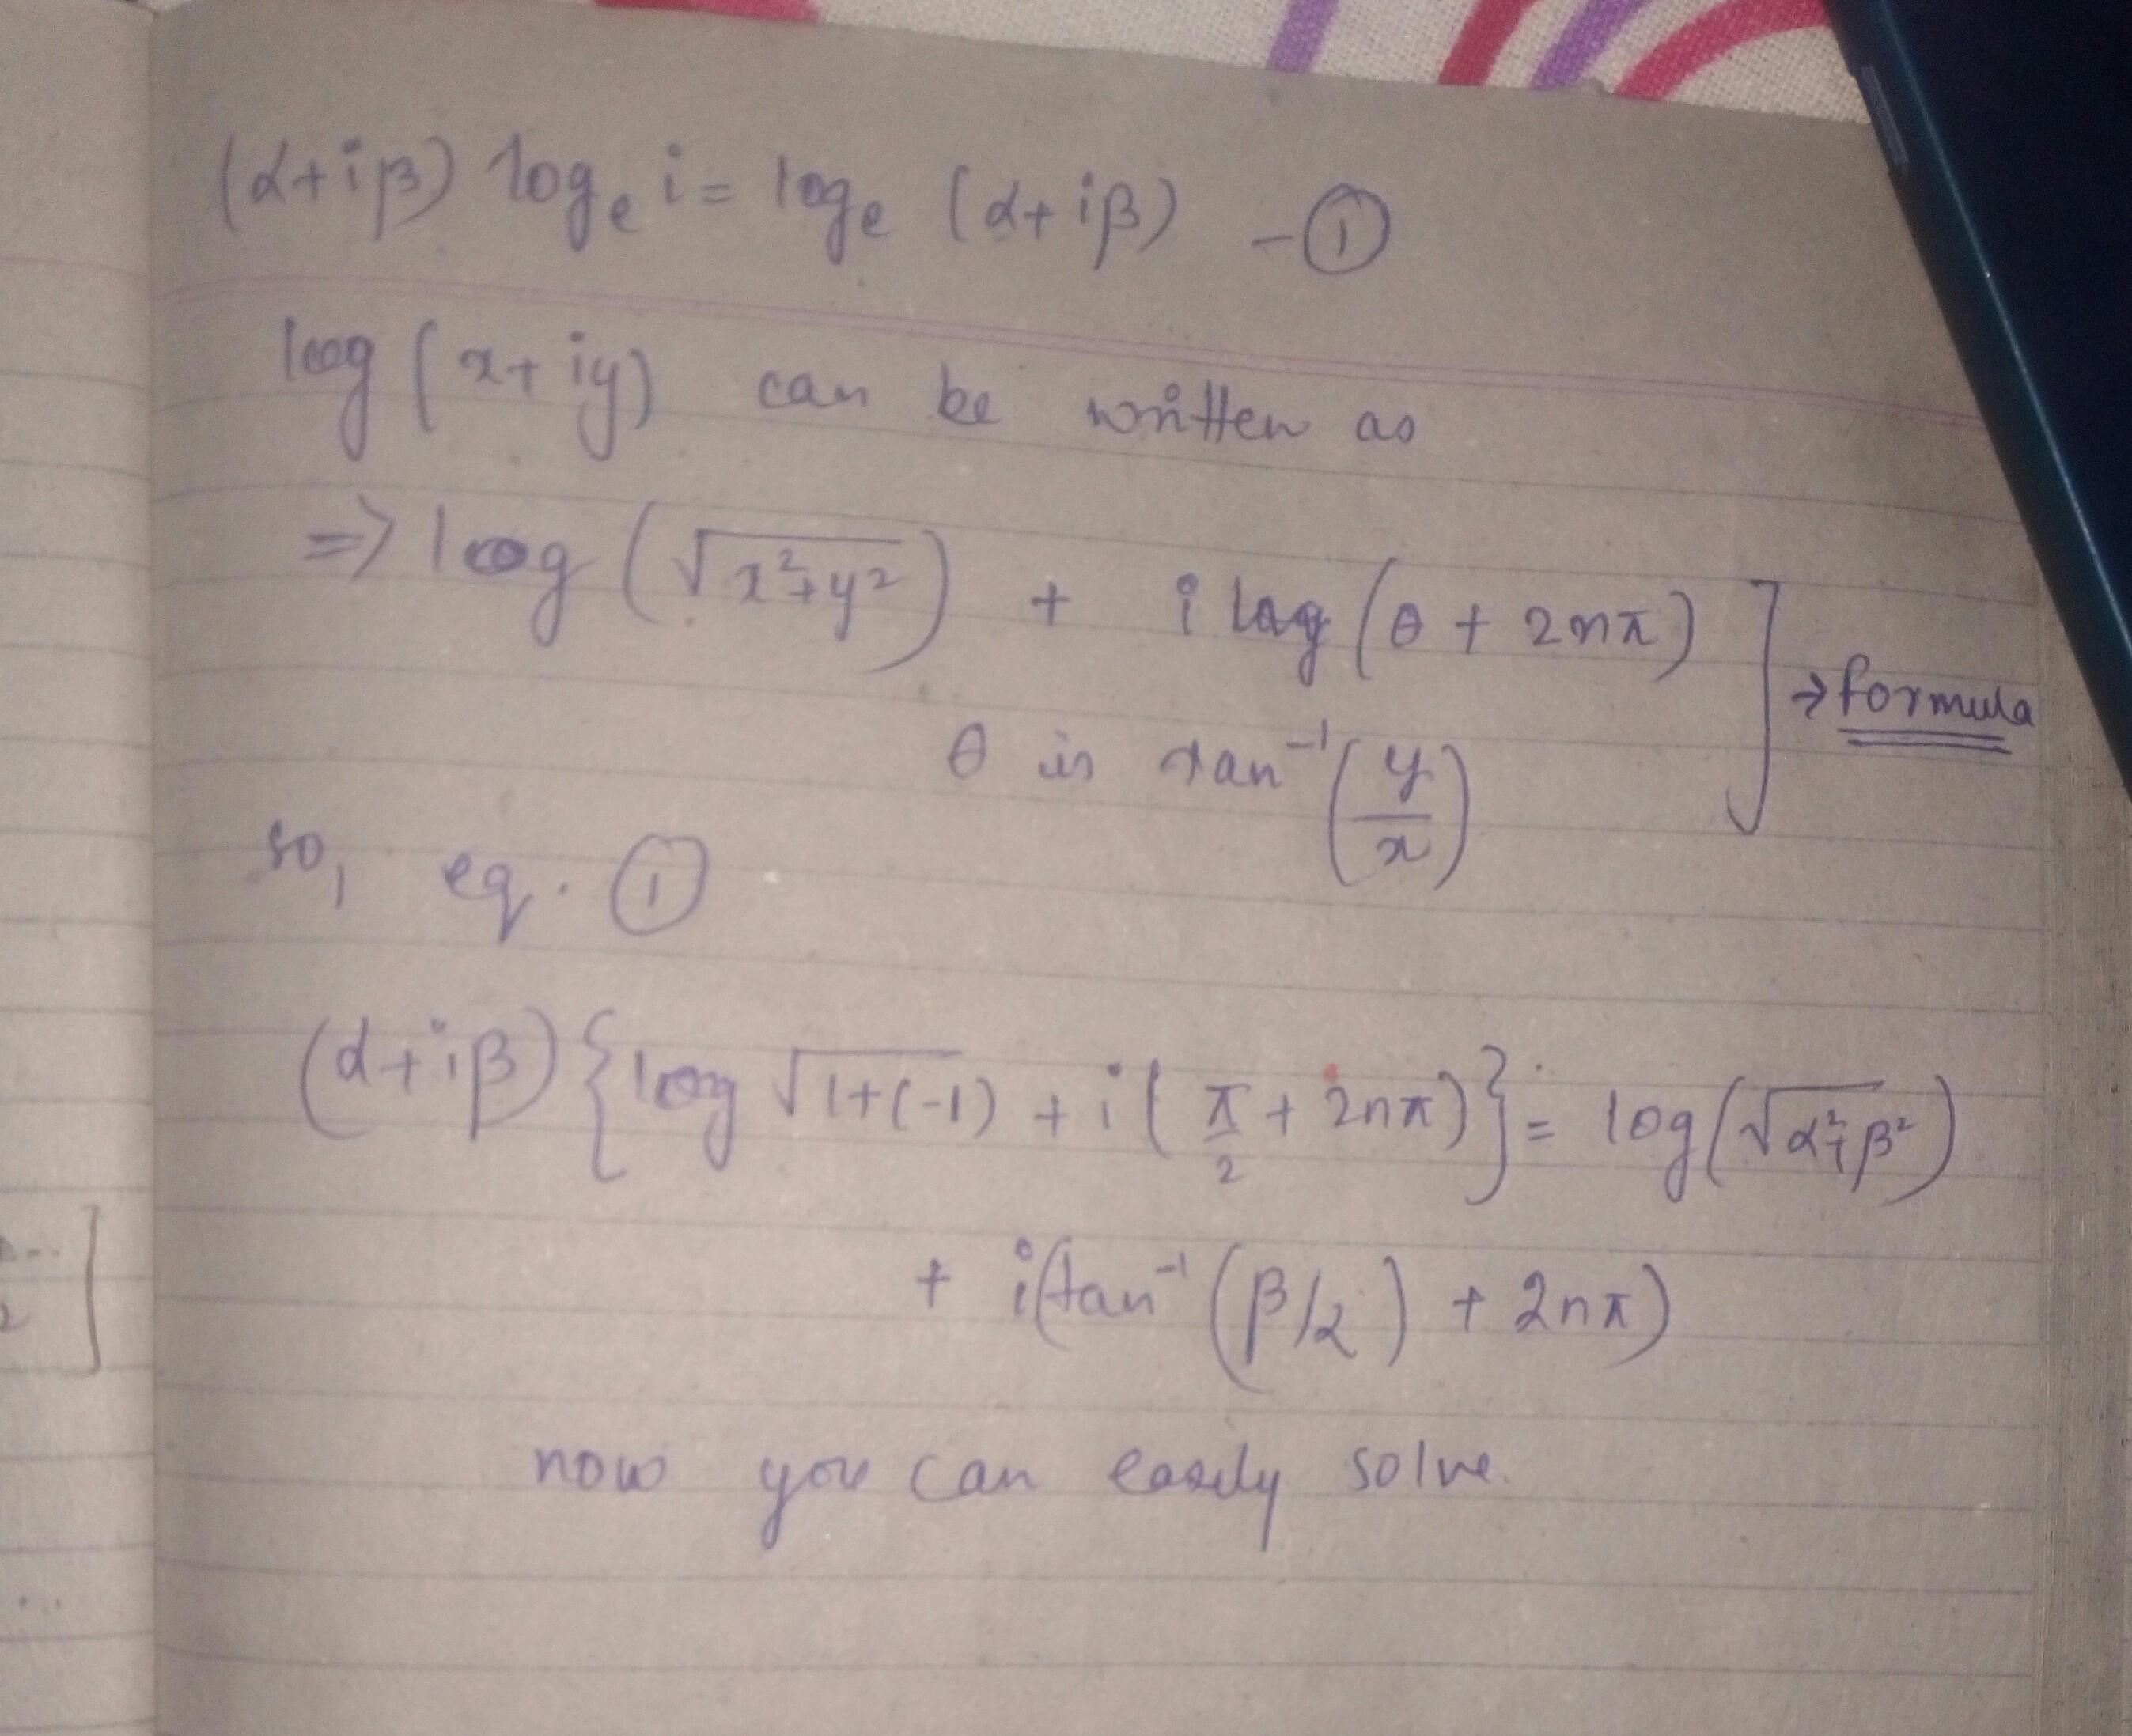 (α+iβ) logₑ i = logₑ (α+iβ) -①
log (x+iy) can be written as
=> log (√x²+y²) + i log (θ + 2nπ)
→ formula
θ is tan⁻¹(y/x)
so, eq. ①
(α+iβ) {log √1+(-1) + i(π/2 + 2nπ)} = log(√α²+β²)
+ i(tan⁻¹(β/α) + 2nπ)
now you can easily solve.